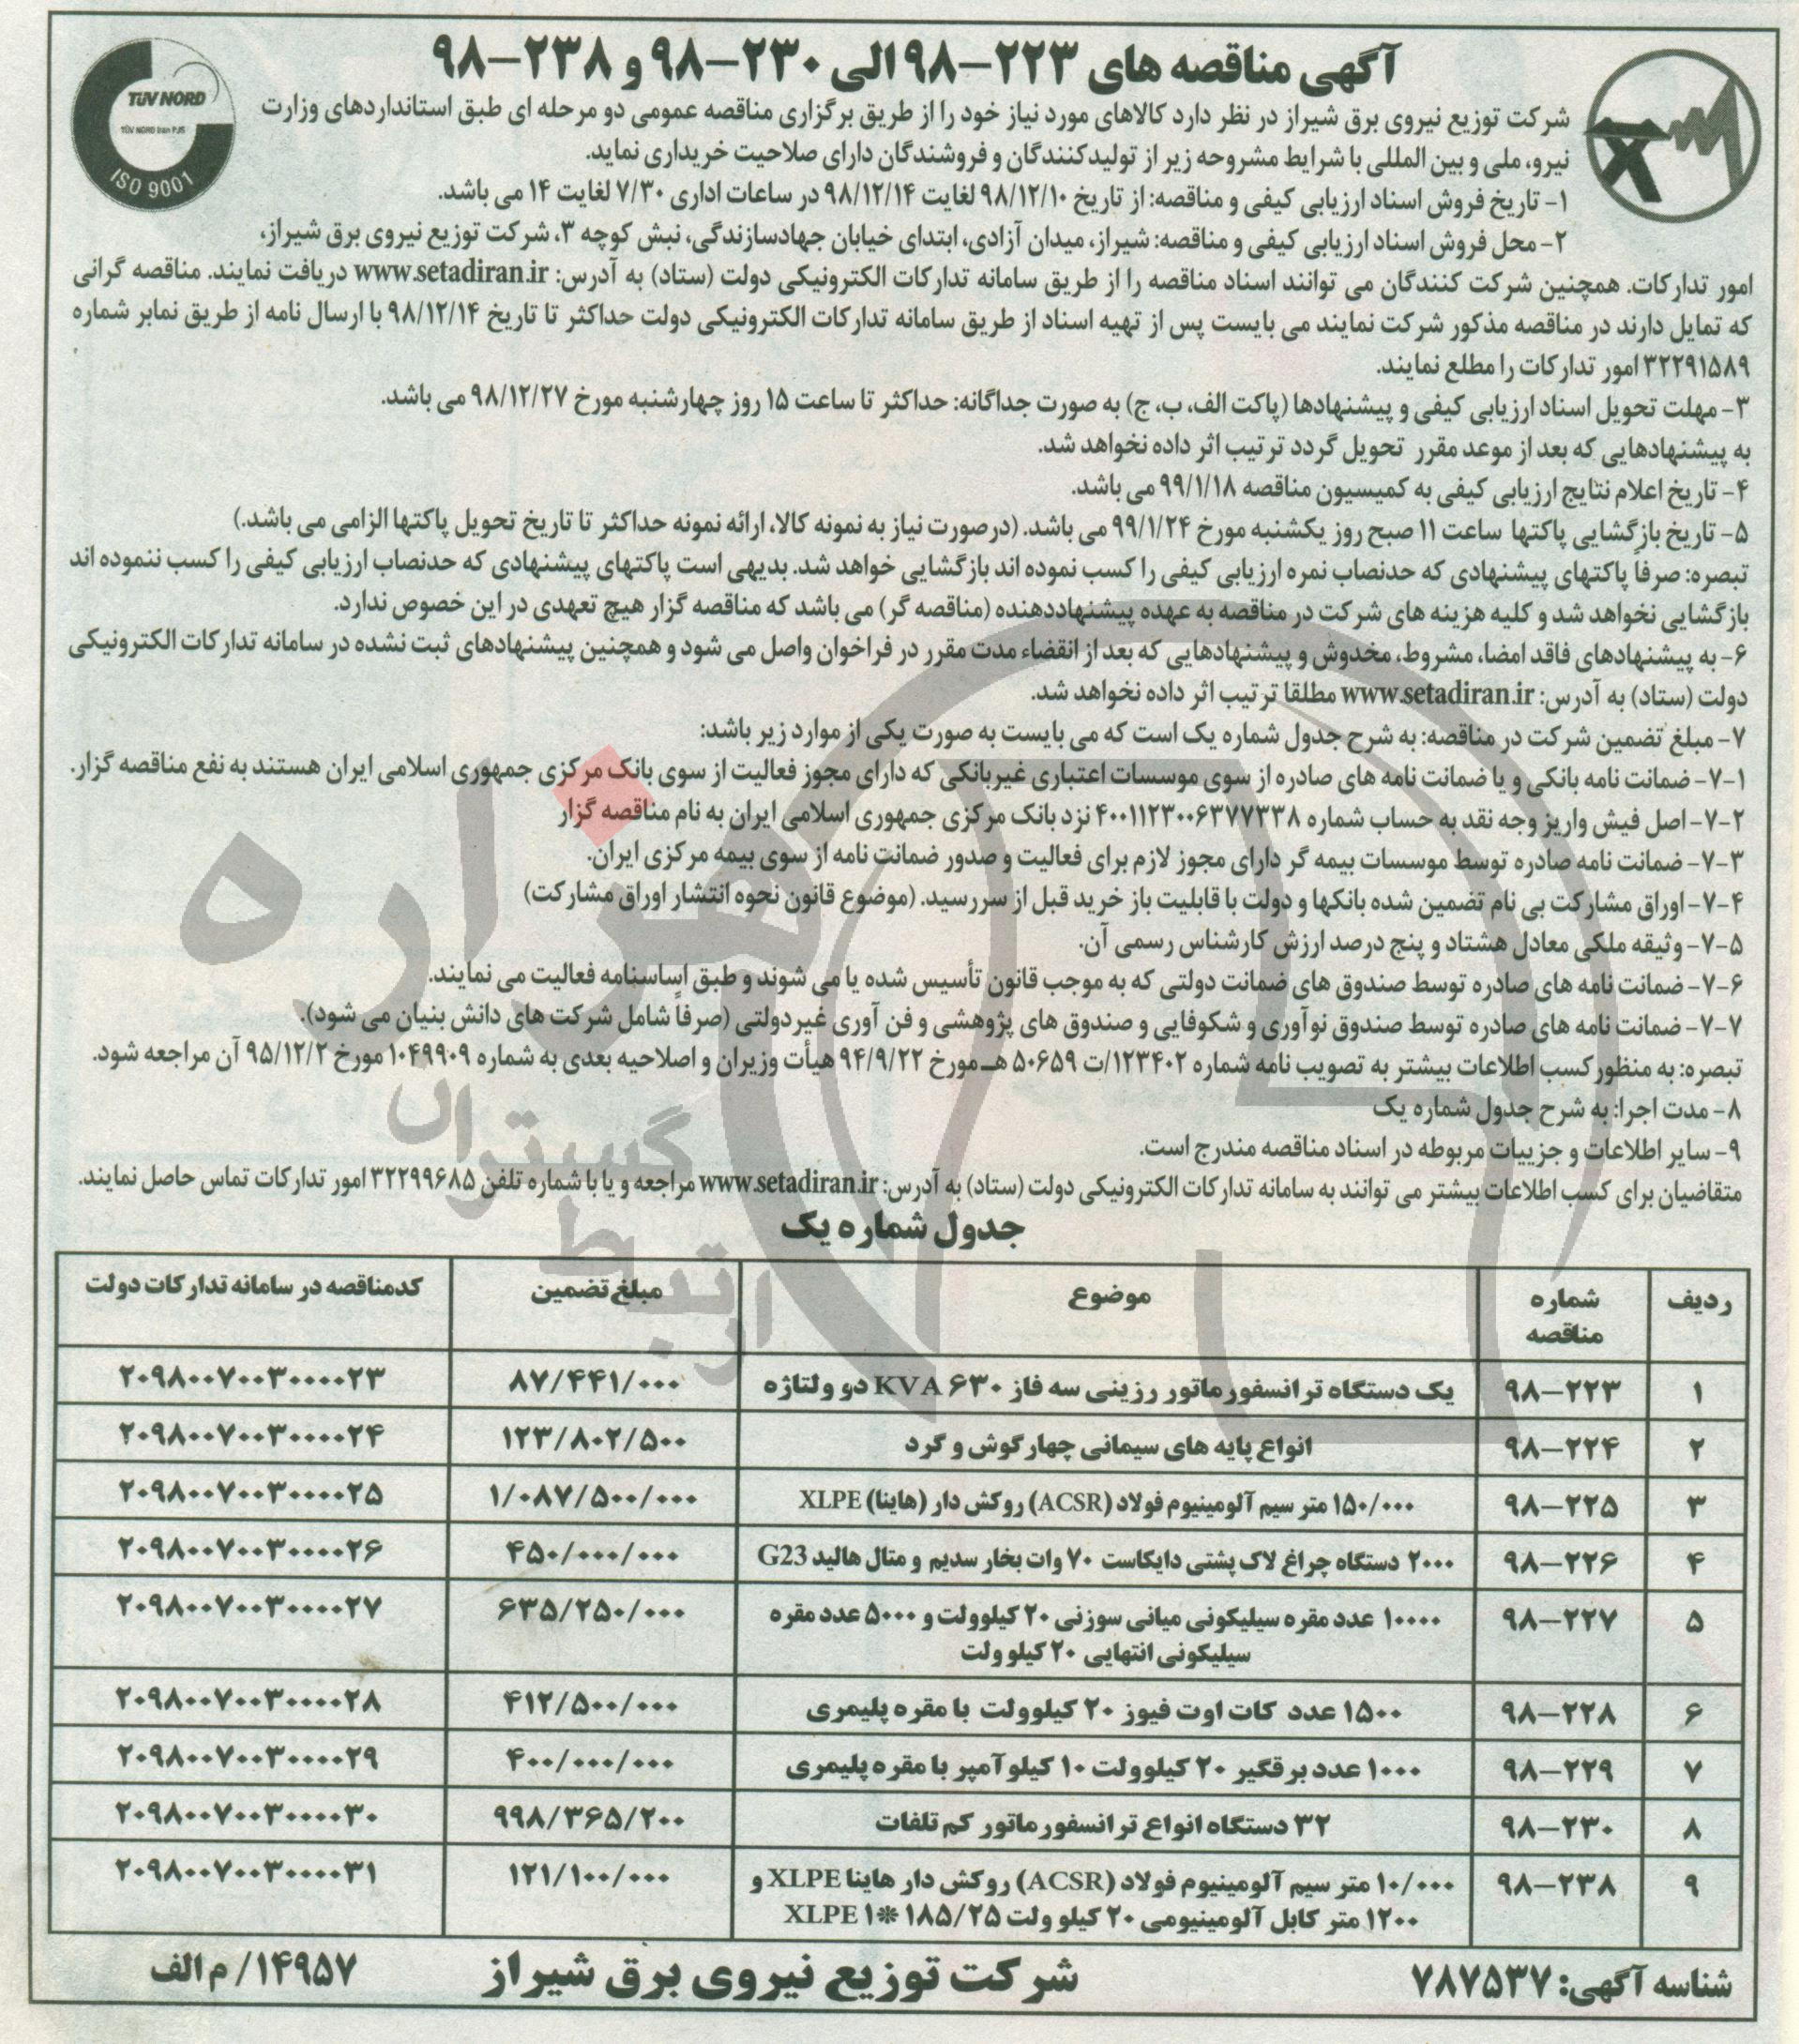 آگهی مناقصه های ۲۲۳-۹۸ الی ۲۳۰-۹۸ و ۲۳۸-۹۸
TÜV NORD
TÜV NORD Iran PJS
ISO 9001
شرکت توزیع نیروی برق شیراز در نظر دارد کالاهای مورد نیاز خود را از طریق برگزاری مناقصه عمومی دو مرحله ای طبق استانداردهای وزارت
نیرو، ملی و بین المللی با شرایط مشروحه زیر از تولیدکنندگان و فروشندگان دارای صلاحیت خریداری نماید.
۱- تاریخ فروش اسناد ارزیابی کیفی و مناقصه: از تاریخ ۹۸/۱۲/۱۰ لغایت ۹۸/۱۲/۱۴ در ساعات اداری ۷/۳۰ لغایت ۱۴ می باشد.
۲- محل فروش اسناد ارزیابی کیفی و مناقصه: شیراز، میدان آزادی، ابتدای خیابان جهادسازندگی، نبش کوچه ۳، شرکت توزیع نیروی برق شیراز،
امور تدارکات. همچنین شرکت کنندگان می توانند اسناد مناقصه را از طریق سامانه تدارکات الکترونیکی دولت (ستاد) به آدرس: www.setadiran.ir دریافت نمایند. مناقصه گرانی
که تمایل دارند در مناقصه مذکور شرکت نمایند می بایست پس از تهیه اسناد از طریق سامانه تدارکات الکترونیکی دولت حداکثر تا تاریخ ۹۸/۱۲/۱۴ با ارسال نامه از طریق نمابر شماره
۳۲۲۹۱۵۸۹ امور تدارکات را مطلع نمایند.
۳- مهلت تحویل اسناد ارزیابی کیفی و پیشنهادها (پاکت الف، ب، ج) به صورت جداگانه: حداکثر تا ساعت ۱۵ روز چهارشنبه مورخ ۹۸/۱۲/۲۷ می باشد.
به پیشنهادهایی که بعد از موعد مقرر تحویل گردد ترتیب اثر داده نخواهد شد.
۴- تاریخ اعلام نتایج ارزیابی کیفی به کمیسیون مناقصه ۹۹/۱/۱۸ می باشد.
۵- تاریخ بازگشایی پاکتها ساعت ۱۱ صبح روز یکشنبه مورخ ۹۹/۱/۲۴ می باشد. (درصورت نیاز به نمونه کالا، ارائه نمونه حداکثر تا تاریخ تحویل پاکتها الزامی می باشد.)
تبصره: صرفاً پاکتهای پیشنهادی که حدنصاب نمره ارزیابی کیفی را کسب نموده اند بازگشایی خواهد شد. بدیهی است پاکتهای پیشنهادی که حدنصاب ارزیابی کیفی را کسب ننموده اند
بازگشایی نخواهد شد و کلیه هزینه های شرکت در مناقصه به عهده پیشنهاددهنده (مناقصه گر) می باشد که مناقصه گزار هیچ تعهدی در این خصوص ندارد.
۶- به پیشنهادهای فاقد امضا، مشروط، مخدوش و پیشنهادهایی که بعد از انقضاء مدت مقرر در فراخوان واصل می شود و همچنین پیشنهادهای ثبت نشده در سامانه تدارکات الکترونیکی
دولت (ستاد) به آدرس: www.setadiran.ir مطلقا ترتیب اثر داده نخواهد شد.
۷- مبلغ تضمین شرکت در مناقصه: به شرح جدول شماره یک است که می بایست به صورت یکی از موارد زیر باشد:
۷-۱- ضمانت نامه بانکی و یا ضمانت نامه های صادره از سوی موسسات اعتباری غیربانکی که دارای مجوز فعالیت از سوی بانک مرکزی جمهوری اسلامی ایران هستند به نفع مناقصه گزار.
۷-۲- اصل فیش واریز وجه نقد به حساب شماره ۴۰۰۱۱۲۳۰۰۶۳۷۷۳۳۸ نزد بانک مرکزی جمهوری اسلامی ایران به نام مناقصه گزار
۷-۳- ضمانت نامه صادره توسط موسسات بیمه گر دارای مجوز لازم برای فعالیت و صدور ضمانت نامه از سوی بیمه مرکزی ایران.
۷-۴- اوراق مشارکت بی نام تضمین شده بانکها و دولت با قابلیت باز خرید قبل از سررسید. (موضوع قانون نحوه انتشار اوراق مشارکت)
۷-۵- وثیقه ملکی معادل هشتاد و پنج درصد ارزش کارشناس رسمی آن.
۷-۶- ضمانت نامه های صادره توسط صندوق های ضمانت دولتی که به موجب قانون تأسیس شده یا می شوند و طبق اساسنامه فعالیت می نمایند.
۷-۷- ضمانت نامه های صادره توسط صندوق نوآوری و شکوفایی و صندوق های پژوهشی و فن آوری غیردولتی (صرفاً شامل شرکت های دانش بنیان می شود).
تبصره: به منظور کسب اطلاعات بیشتر به تصویب نامه شماره ۱۲۳۴۰۲/ت ۵۰۶۵۹ هـ مورخ ۹۴/۹/۲۲ هیأت وزیران و اصلاحیه بعدی به شماره ۱۰۴۹۹۰۹ مورخ ۹۵/۱۲/۲ آن مراجعه شود.
۸- مدت اجرا: به شرح جدول شماره یک
۹- سایر اطلاعات و جزییات مربوطه در اسناد مناقصه مندرج است.
متقاضیان برای کسب اطلاعات بیشتر می توانند به سامانه تدارکات الکترونیکی دولت (ستاد) به آدرس: www.setadiran.ir مراجعه و یا با شماره تلفن ۳۲۲۹۹۶۸۵ امور تدارکات تماس حاصل نمایند.
هزاره
ارتباط گستران
جدول شماره یک
ردیف شماره مناقصه موضوع مبلغ تضمین کدمناقصه در سامانه تدارکات دولت
۱ ۹۸-۲۲۳ یک دستگاه ترانسفورماتور رزینی سه فاز ۶۳۰ KVA دو ولتاژه ۸۷/۴۴۱/۰۰۰ ۲۰۹۸۰۰۷۰۰۳۰۰۰۰۲۳
۲ ۹۸-۲۲۴ انواع پایه های سیمانی چهارگوش و گرد ۱۲۳/۸۰۲/۵۰۰ ۲۰۹۸۰۰۷۰۰۳۰۰۰۰۲۴
۳ ۹۸-۲۲۵ ۱۵۰/۰۰۰ متر سیم آلومینیوم فولاد (ACSR) روکش دار (هاینا) XLPE ۱/۰۸۷/۵۰۰/۰۰۰ ۲۰۹۸۰۰۷۰۰۳۰۰۰۰۲۵
۴ ۹۸-۲۲۶ ۲۰۰۰ دستگاه چراغ لاک پشتی دایکاست ۷۰ وات بخار سدیم و متال هالید G23 ۴۵۰/۰۰۰/۰۰۰ ۲۰۹۸۰۰۷۰۰۳۰۰۰۰۲۶
۵ ۹۸-۲۲۷ ۱۰۰۰۰ عدد مقره سیلیکونی میانی سوزنی ۲۰ کیلوولت و ۵۰۰۰ عدد مقره ۶۳۵/۲۵۰/۰۰۰ ۲۰۹۸۰۰۷۰۰۳۰۰۰۰۲۷
سیلیکونی انتهایی ۲۰ کیلو ولت
۶ ۹۸-۲۲۸ ۱۵۰۰ عدد کات اوت فیوز ۲۰ کیلوولت با مقره پلیمری ۴۱۲/۵۰۰/۰۰۰ ۲۰۹۸۰۰۷۰۰۳۰۰۰۰۲۸
۷ ۹۸-۲۲۹ ۱۰۰۰ عدد برقگیر ۲۰ کیلوولت ۱۰ کیلو آمپر با مقره پلیمری ۴۰۰/۰۰۰/۰۰۰ ۲۰۹۸۰۰۷۰۰۳۰۰۰۰۲۹
۸ ۹۸-۲۳۰ ۳۲ دستگاه انواع ترانسفورماتور کم تلفات ۹۹۸/۳۶۵/۲۰۰ ۲۰۹۸۰۰۷۰۰۳۰۰۰۰۳۰
۹ ۹۸-۲۳۸ ۱۰/۰۰۰ متر سیم آلومینیوم فولاد (ACSR) روکش دار هاینا XLPE و ۱۲۱/۱۰۰/۰۰۰ ۲۰۹۸۰۰۷۰۰۳۰۰۰۰۳۱
۱۲۰۰ متر کابل آلومینیومی ۲۰ کیلو ولت ۱۸۵/۲۵*۱ XLPE
شناسه آگهی: ۷۸۷۵۳۷ شرکت توزیع نیروی برق شیراز ۱۴۹۵۷/ م الف